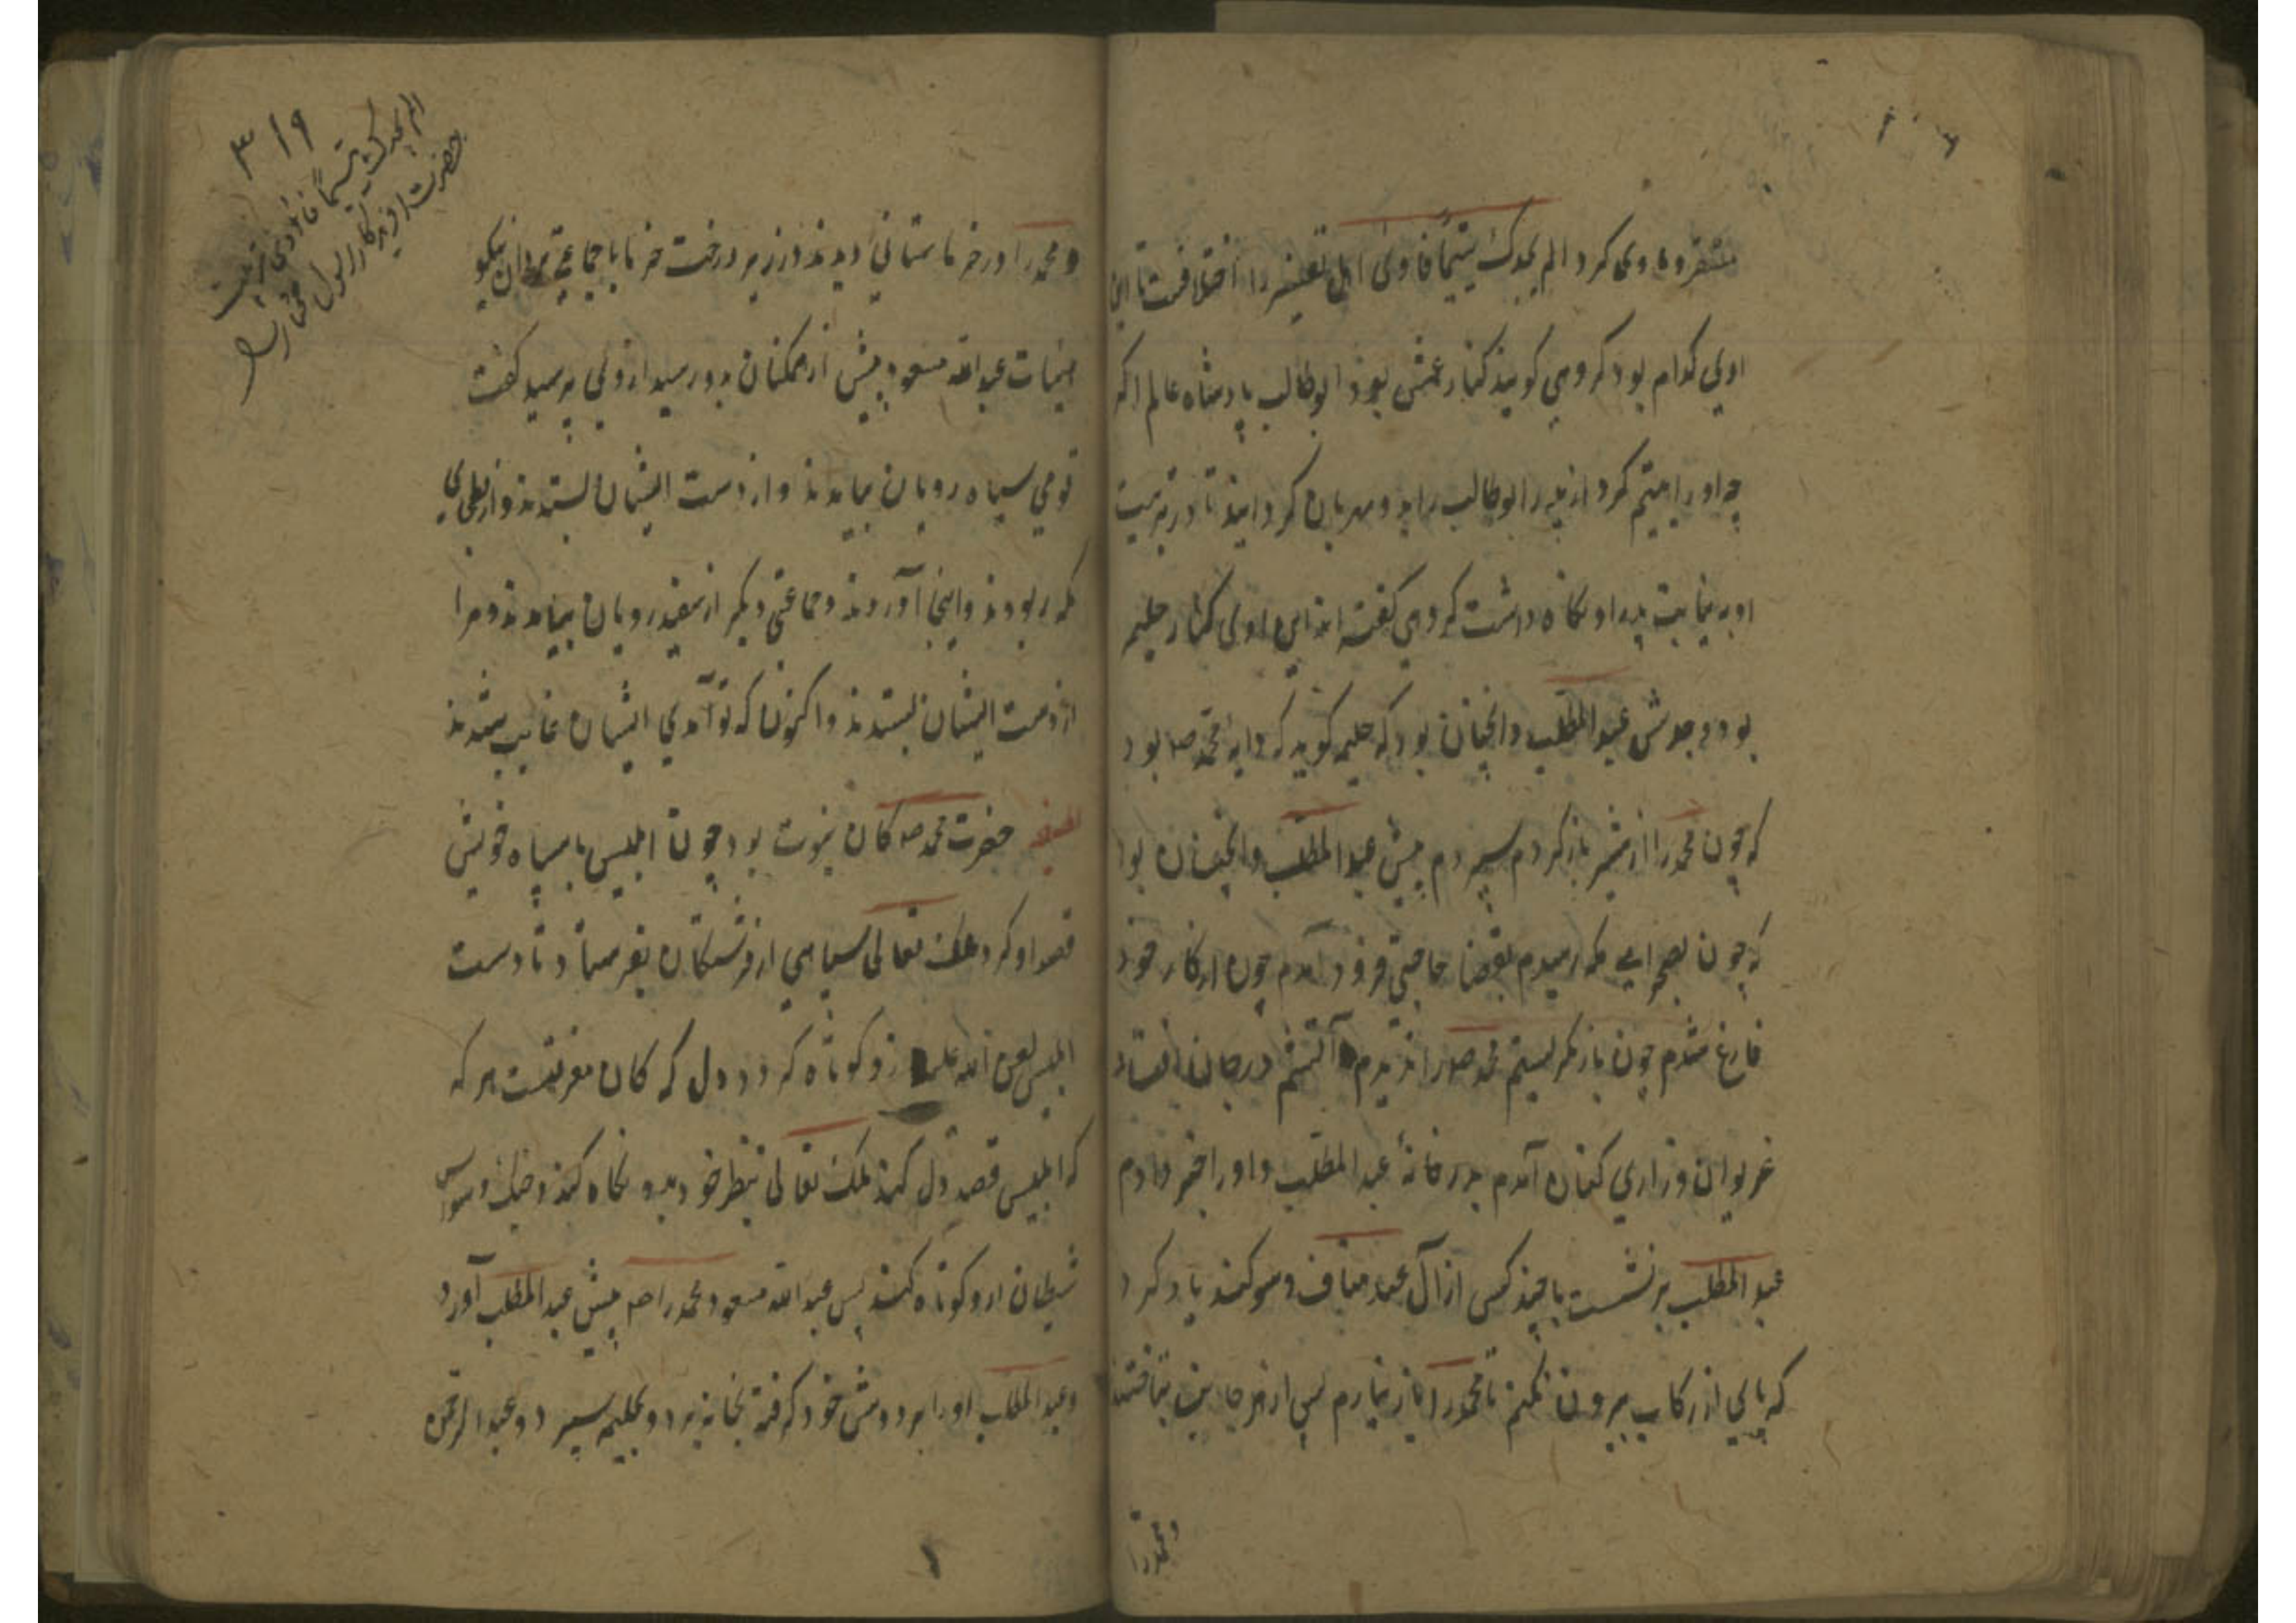 مستقر و ماوی کرد الم یجدک یتیما فاوی اهل تفسیر را اختلافست تا این
اوی کدام بود کروهی کویند کنار عمش بود ابوطالب پادشاه عالم اکر
چه اورا یتیم کرد از پدر ابوطالب را برو مهربان کردانید تا در تربیت
او به نیابت پدر او نکاه داشت کروهی کفته اند این اوی کنار حلیمه
بود و جدش عبدالمطلب و انچنان بود که حلیمه کوید که دایه محمد صه بود
که چون محمد را از شیر باز کردم سپردم پیش عبدالمطلب و انچنان بود
که چون بصحرای مکه رسیدم بقضا حاجتی فرود آمدم چون از کار خود
فارغ شدم چون باز نکریستم محمد صه را ندیدم آتشم در جان افتاد
غریوان و زاری کنان آمدم بدر خانهٔ عبدالمطلب و اورا خبر دادم
عبدالمطلب برنشست با چند کس از آل عبد مناف و سوکند یاد کرد
که پای از رکاب بیرون نکنم تا محمد را باز نیارم پس از هر جانب شتافتند
و محمد را
۳۱۹
الم یجدک یتیما فاوی تربیت
حضرت افریدکار رسول مختار را
و محمد را در خرماستانی دیدند در زیر درخت خرما با جماعتی مردان نیکو
عبدالله مسعود پیش از همکنان بدو رسید از وی پرسید کفت
قومی سیاه رویان بیامدند و از دست ایشان بستدند و از بطحای
مکه ربودند و اینجا آوردند و جماعتی دیکر از سفید رویان بیامدند و مرا
از دست ایشان بستدند و اکنون که تو آمدی ایشان غایب شدند
حضرت محمد صه کان نبوت بود چون ابلیس با سپاه خویش
قصد او کرد ملک تعالی سپاهی از فرشتکان بفرستاد تا دست
ابلیس لعین الله علیه ازو کوتاه کرد دل که کان معرفتست هر که
که ابلیس قصد دل کند ملک تعالی بنظر خود بدو نکاه کند و جنک وسواس
شیطان ازو کوتاه کند پس عبدالله مسعود محمد را صه پیش عبدالمطلب آورد
و عبدالمطلب اورا بر دوش خود کرفته بخانه برد و بحلیمه سپرد و عبدالرحمن